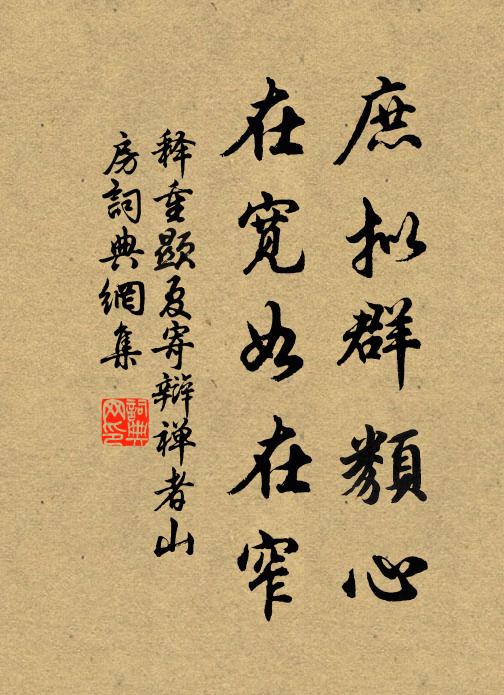 庶拟群類心
在寬如在窄
释重顯夏寄辯禅者山
房詞典網集
詞典网印